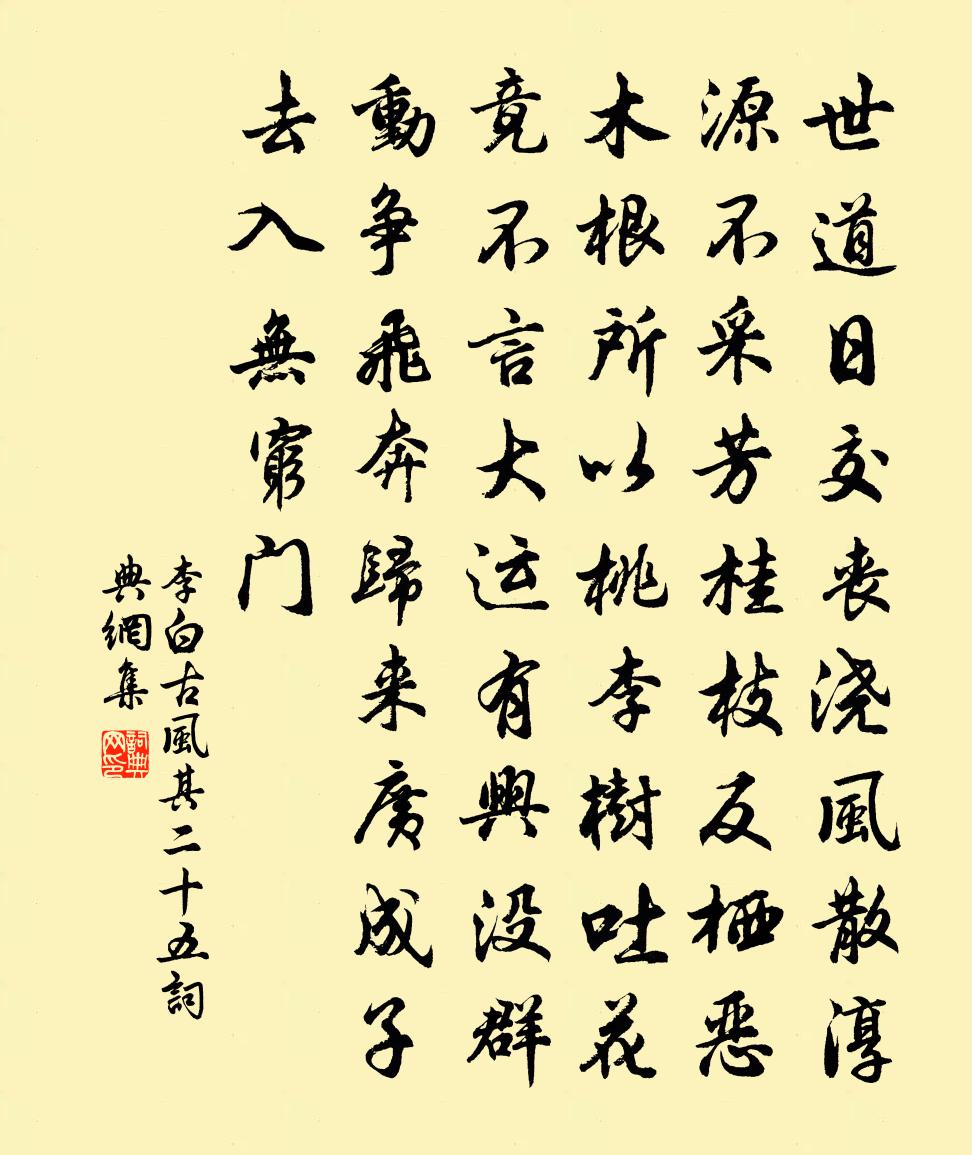 世道日交丧浇風散淳
源不采芳桂枝反栖恶
木根所以桃李樹吐花
竟不言大运有興没群
動争飛奔歸来廣成子
去入無窮门
李白古風其二十五詞
典網集
詞典網印